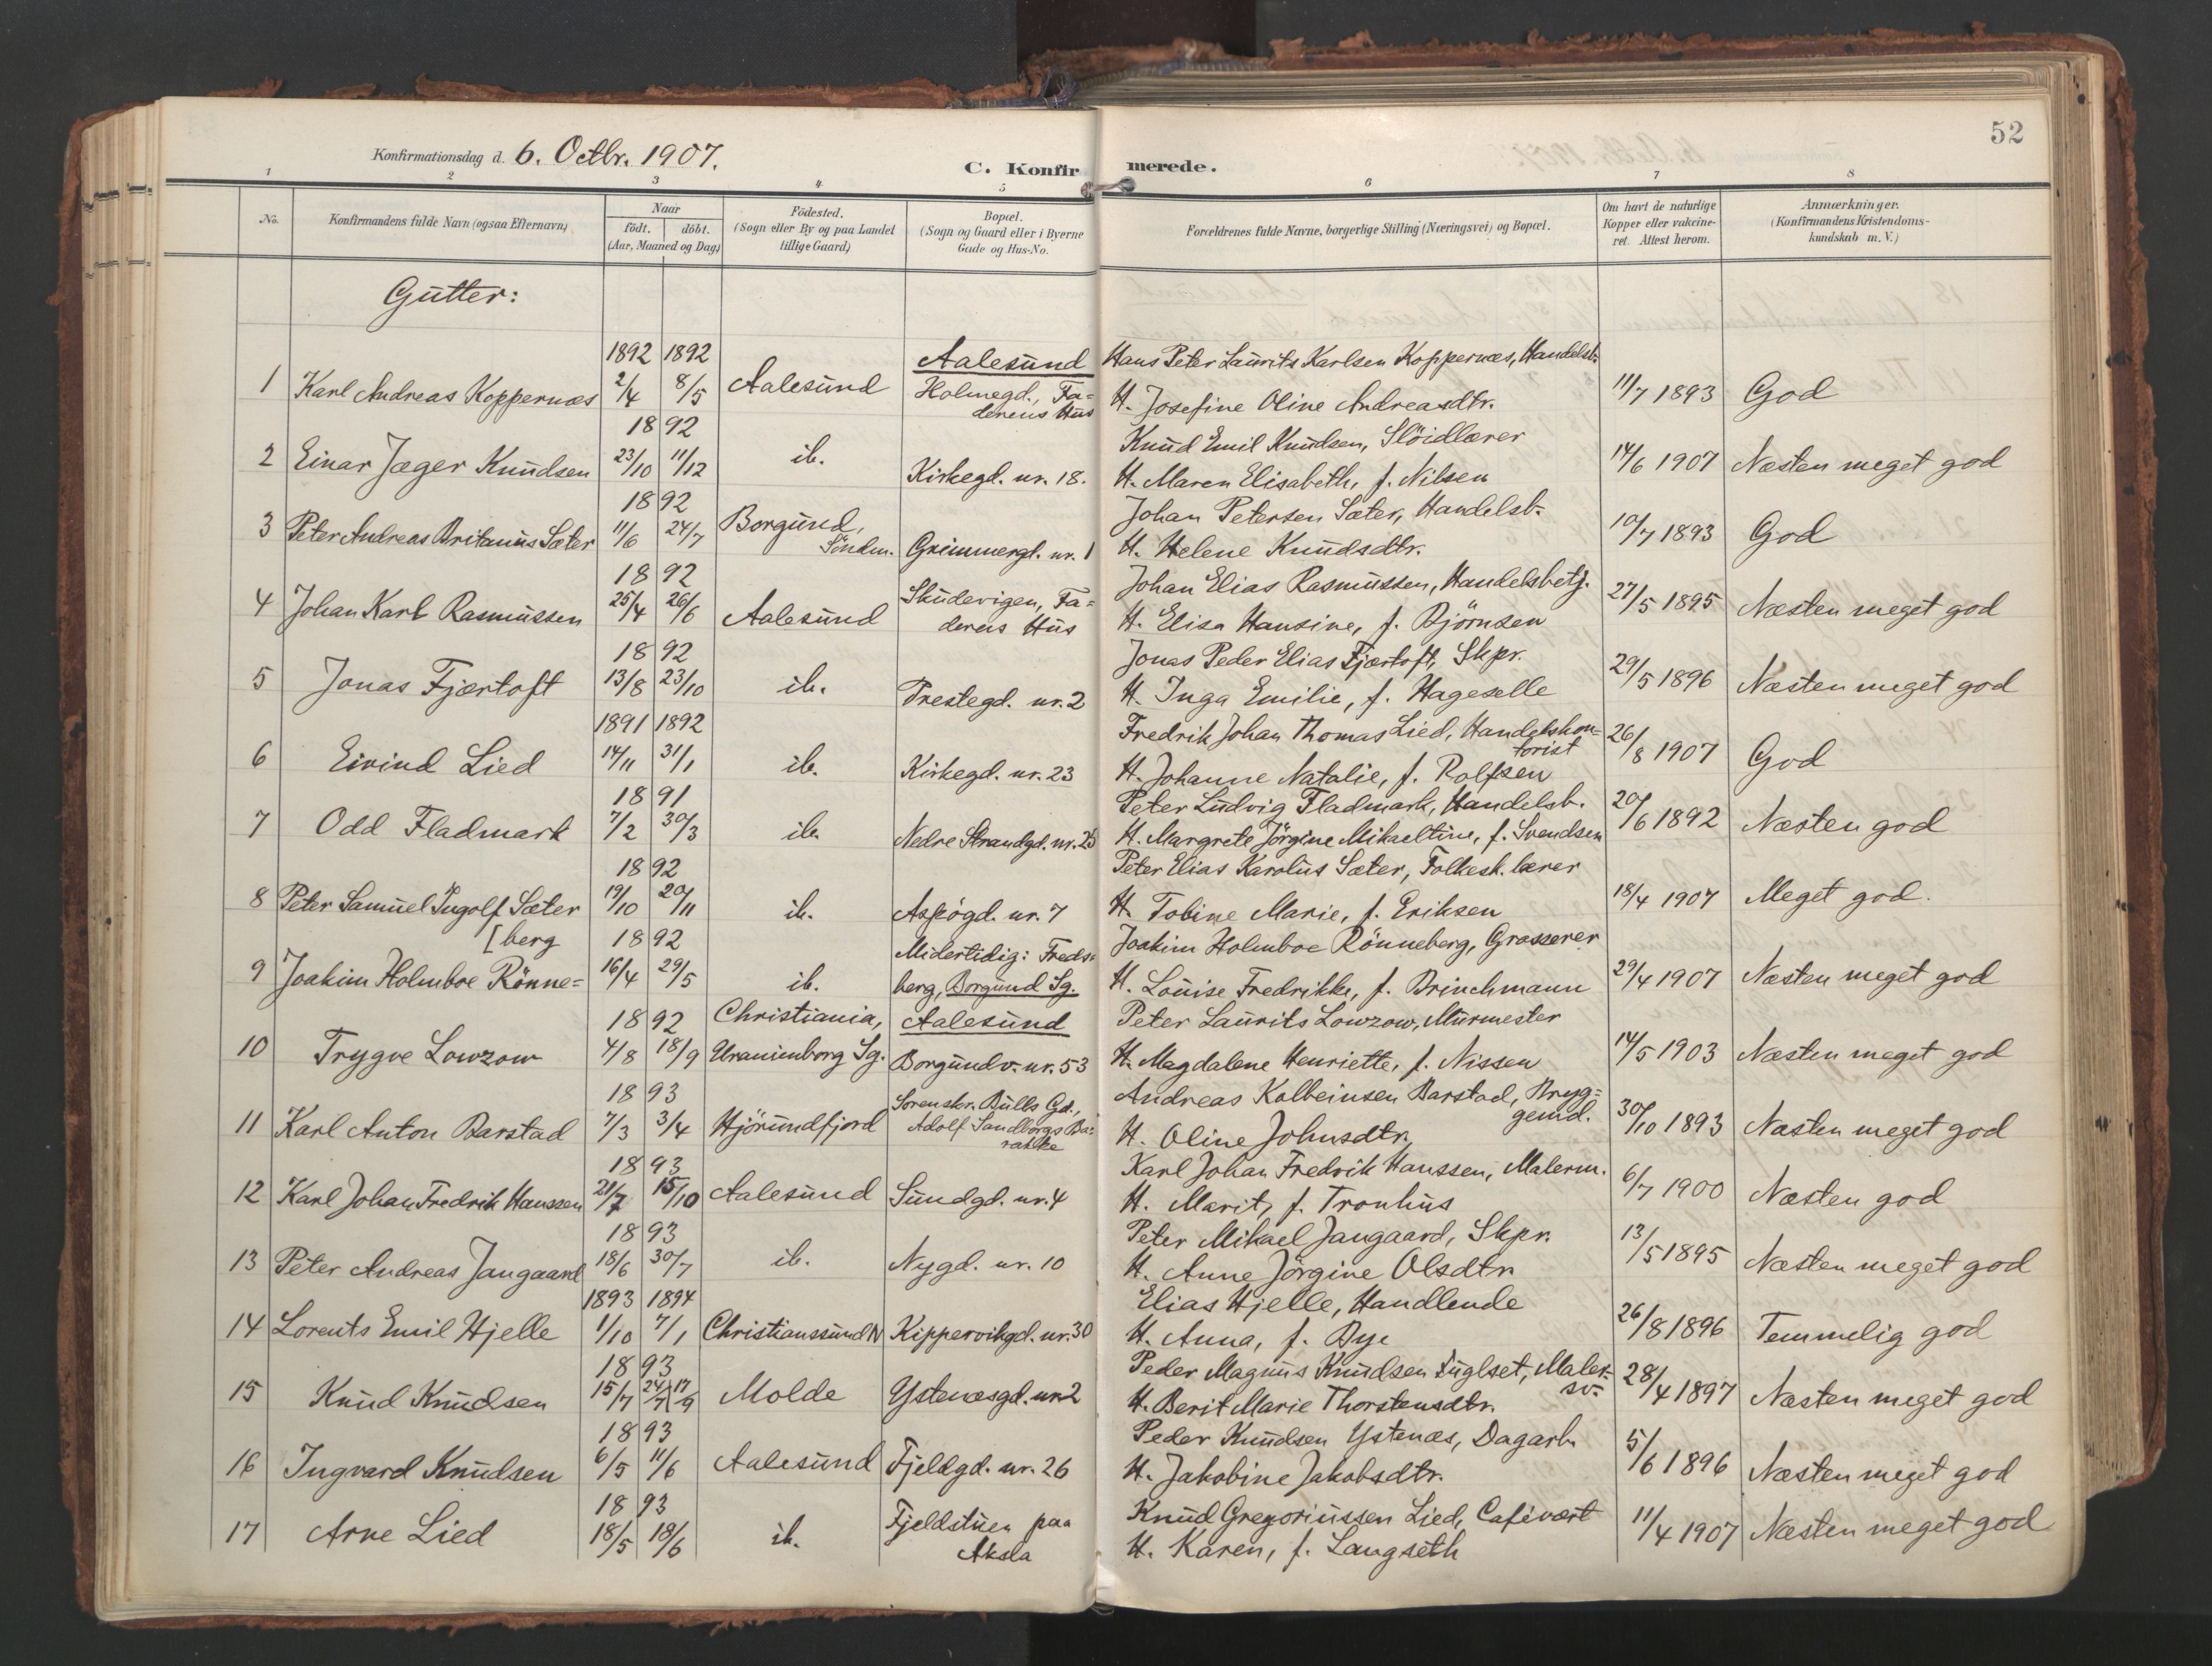 52
Konfirmationsdag d. 6. Octbr. 1907.
C. Konfirmerede.
1 2 3 4 5 6 7 8
No.
Konfirmandens fulde Navn (ogsaa Efternavn)
Naar
födt. döbt.
(Aar, Maaned og Dag)
Födested.
(Sogn eller By og paa Landet
tillige Gaard)
Bopæl.
(Sogn og Gaard eller i Byerne
Gade og Hus-No.
Forældrenes fulde Navne, borgerlige Stilling (Næringsvei) og Bopæl.
Om havt de naturlige
Kopper eller vakcine-
ret. Attest herom.
Anmærkninger.
(Konfirmandens Kristendoms-
kundskab m. V.)
Gutter:
1 Karl Andreas Koppernæs
1892 1892
2/4 8/5
Aalesund
Aalesund
Holmegd., Fa=
derens Hus
Hans Peter Laurits Karlsen Koppernæs, Handelsb.
H. Josefine Oline Andreasdtr.
11/7 1893
God
2 Einar Jæger Knudsen
1892
23/10 11/12
ib.
Kirkegd. nr. 18.
Knud Emil Knudsen, Slöidlærer
H. Maren Elisabeth, f. Nilsen
14/6 1907
Næsten meget god
3 Peter Andreas Britanus Sæter
1892
11/6 24/7
Borgund,
Söndm.
Grimmergt. nr. 1
Johan Petersen Sæter, Handelsb.
H. Helene Knudsdtr.
10/7 1893
God
4 Johan Karl Rasmussen
1892
25/4 26/6
Aalesund
Skudevigen, Fa=
derens Hus
Johan Elias Rasmussen, Handelsbetj.
H. Elisa Hansine, f. Björnsen
27/5 1895
Næsten meget god
5 Jonas Fjærtoft
1892
13/8 23/10
ib.
Prestegd. nr. 2
Jonas Peder Elias Fjærtoft, Skpr.
H. Inga Emilie, f. Hageselle
29/5 1896
Næsten meget god
6 Eivind Lied
1891 1892
14/11 31/1
ib.
Kirkegd. nr. 23
Fredrik Johan Thomas Lied, Handelskon=
torist
H. Johanne Natalie, f. Rolfsen
26/8 1907
God
7 Odd Fladmark
1891
7/2 30/3
ib.
Nedre Strandgd. nr. 25
Peter Ludvig Fladmark, Handelsb.
H. Margrete Jörgine Mikaeltine, f. Svendsen
20/6 1892
Næsten god
8 Peter Samuel Ingolf Sæter
1892
19/10 20/11
ib.
Aspögd. nr. 7
Peter Elias Karolus Sæter, Folkesk. lærer
H. Tobine Marie, f. Eriksen
18/4 1907
Meget god.
[berg
9 Joakim Holmboe Rönne=
1892
16/4 29/5
ib.
Midertidig: Freds=
berg, Borgund Sg.
Joakim Holmboe Rönneberg, Grosserer
H. Louise Fredrikke, f. Brinchmann
29/4 1907
Næsten meget god
10 Trygve Lowzow
1892
4/8 18/9
Christiania,
Uranienborg Sg.
Aalesund
Borgundv. nr. 53
Peter Laurits Lowzow, Murmester
H. Magdalene Henriette, f. Nissen
14/5 1903
Næsten meget god
11 Karl Anton Barstad
1893
7/3 3/4
Hjörundfjord
Sorenskr. Bulls Gd.,
Adolf Sandborgs Ba=
rakke
Andreas Kolbeinsen Barstad, Bryg=
gemd.
H. Oline Johnsdtr.
30/10 1893
Næsten meget god
12 Karl Johan Fredrik Hanssen
1893
21/7 15/10
Aalesund
Sundgd. nr. 4
Karl Johan Fredrik Hanssen, Malerm.
H. Marit, f. Tronhus
6/7 1900
Næsten god
13 Peter Andreas Jangaard
1893
18/6 30/7
ib.
Nygd. nr. 10
Peter Mikael Jangaard, Skpr.
H. Anne Jörgine Olsdtr.
13/5 1895
Næsten meget god
14 Lorents Emil Hjelle
1893 1894
1/10 7/1
Christianssund N
Kippervikgd. nr. 30
Elias Hjelle, Handlende
H. Anna, f. Bye
26/8 1896
Temmelig god
15 Knud Knudsen
1893
15/7 24/7 17/9
Molde
Ystenesgd. nr. 2
Peder Magnus Knudsen Fuglset, Maler=
sv.
H. Berit Marie Thorstensdtr.
28/4 1897
Næsten meget god
16 Ingvard Knudsen
1893
6/5 11/6
Aalesund
Fjeldgd. nr. 26
Peder Knudsen Ystenæs, Dagarb.
H. Jakobine Jakobsdtr.
5/6 1896
Næsten meget god
17 Arne Lied
1893
18/5 18/6
ib.
Fjeldstuen paa
Aksla
Knud Gregoriussen Lied, Cafévært
H. Karen, f. Langseth
11/4 1907
Næsten meget god